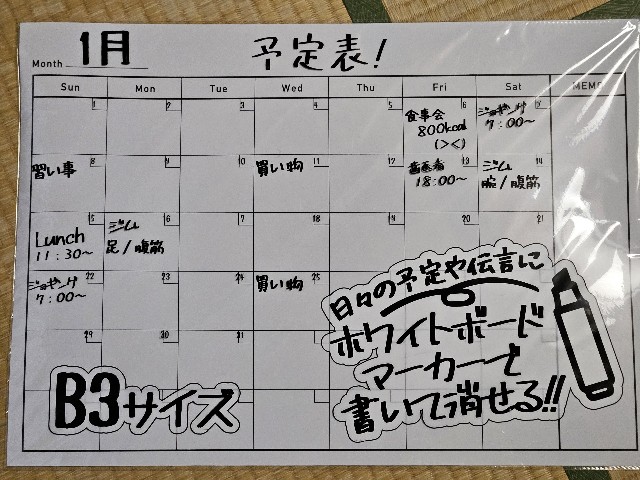 Month 1月 予定表!
Sun Mon Tue Wed Thu Fri Sat MEMO
1 2 3 4 5 6 7
食事会
800kcal
(><)
ジョギング
7:00～
8 9 10 11 12 13 14
習い事
買い物
歯医者
18:00～
ジム
腕/腹筋
15 16 17 18 19 20 21
Lunch
11:30～
ジム
足/腹筋
22 23 24 25
ジョギング
7:00～
買い物
29 30 31
日々の予定や伝言に
ホワイトボード
マーカーで
書いて消せる!!
B3サイズ